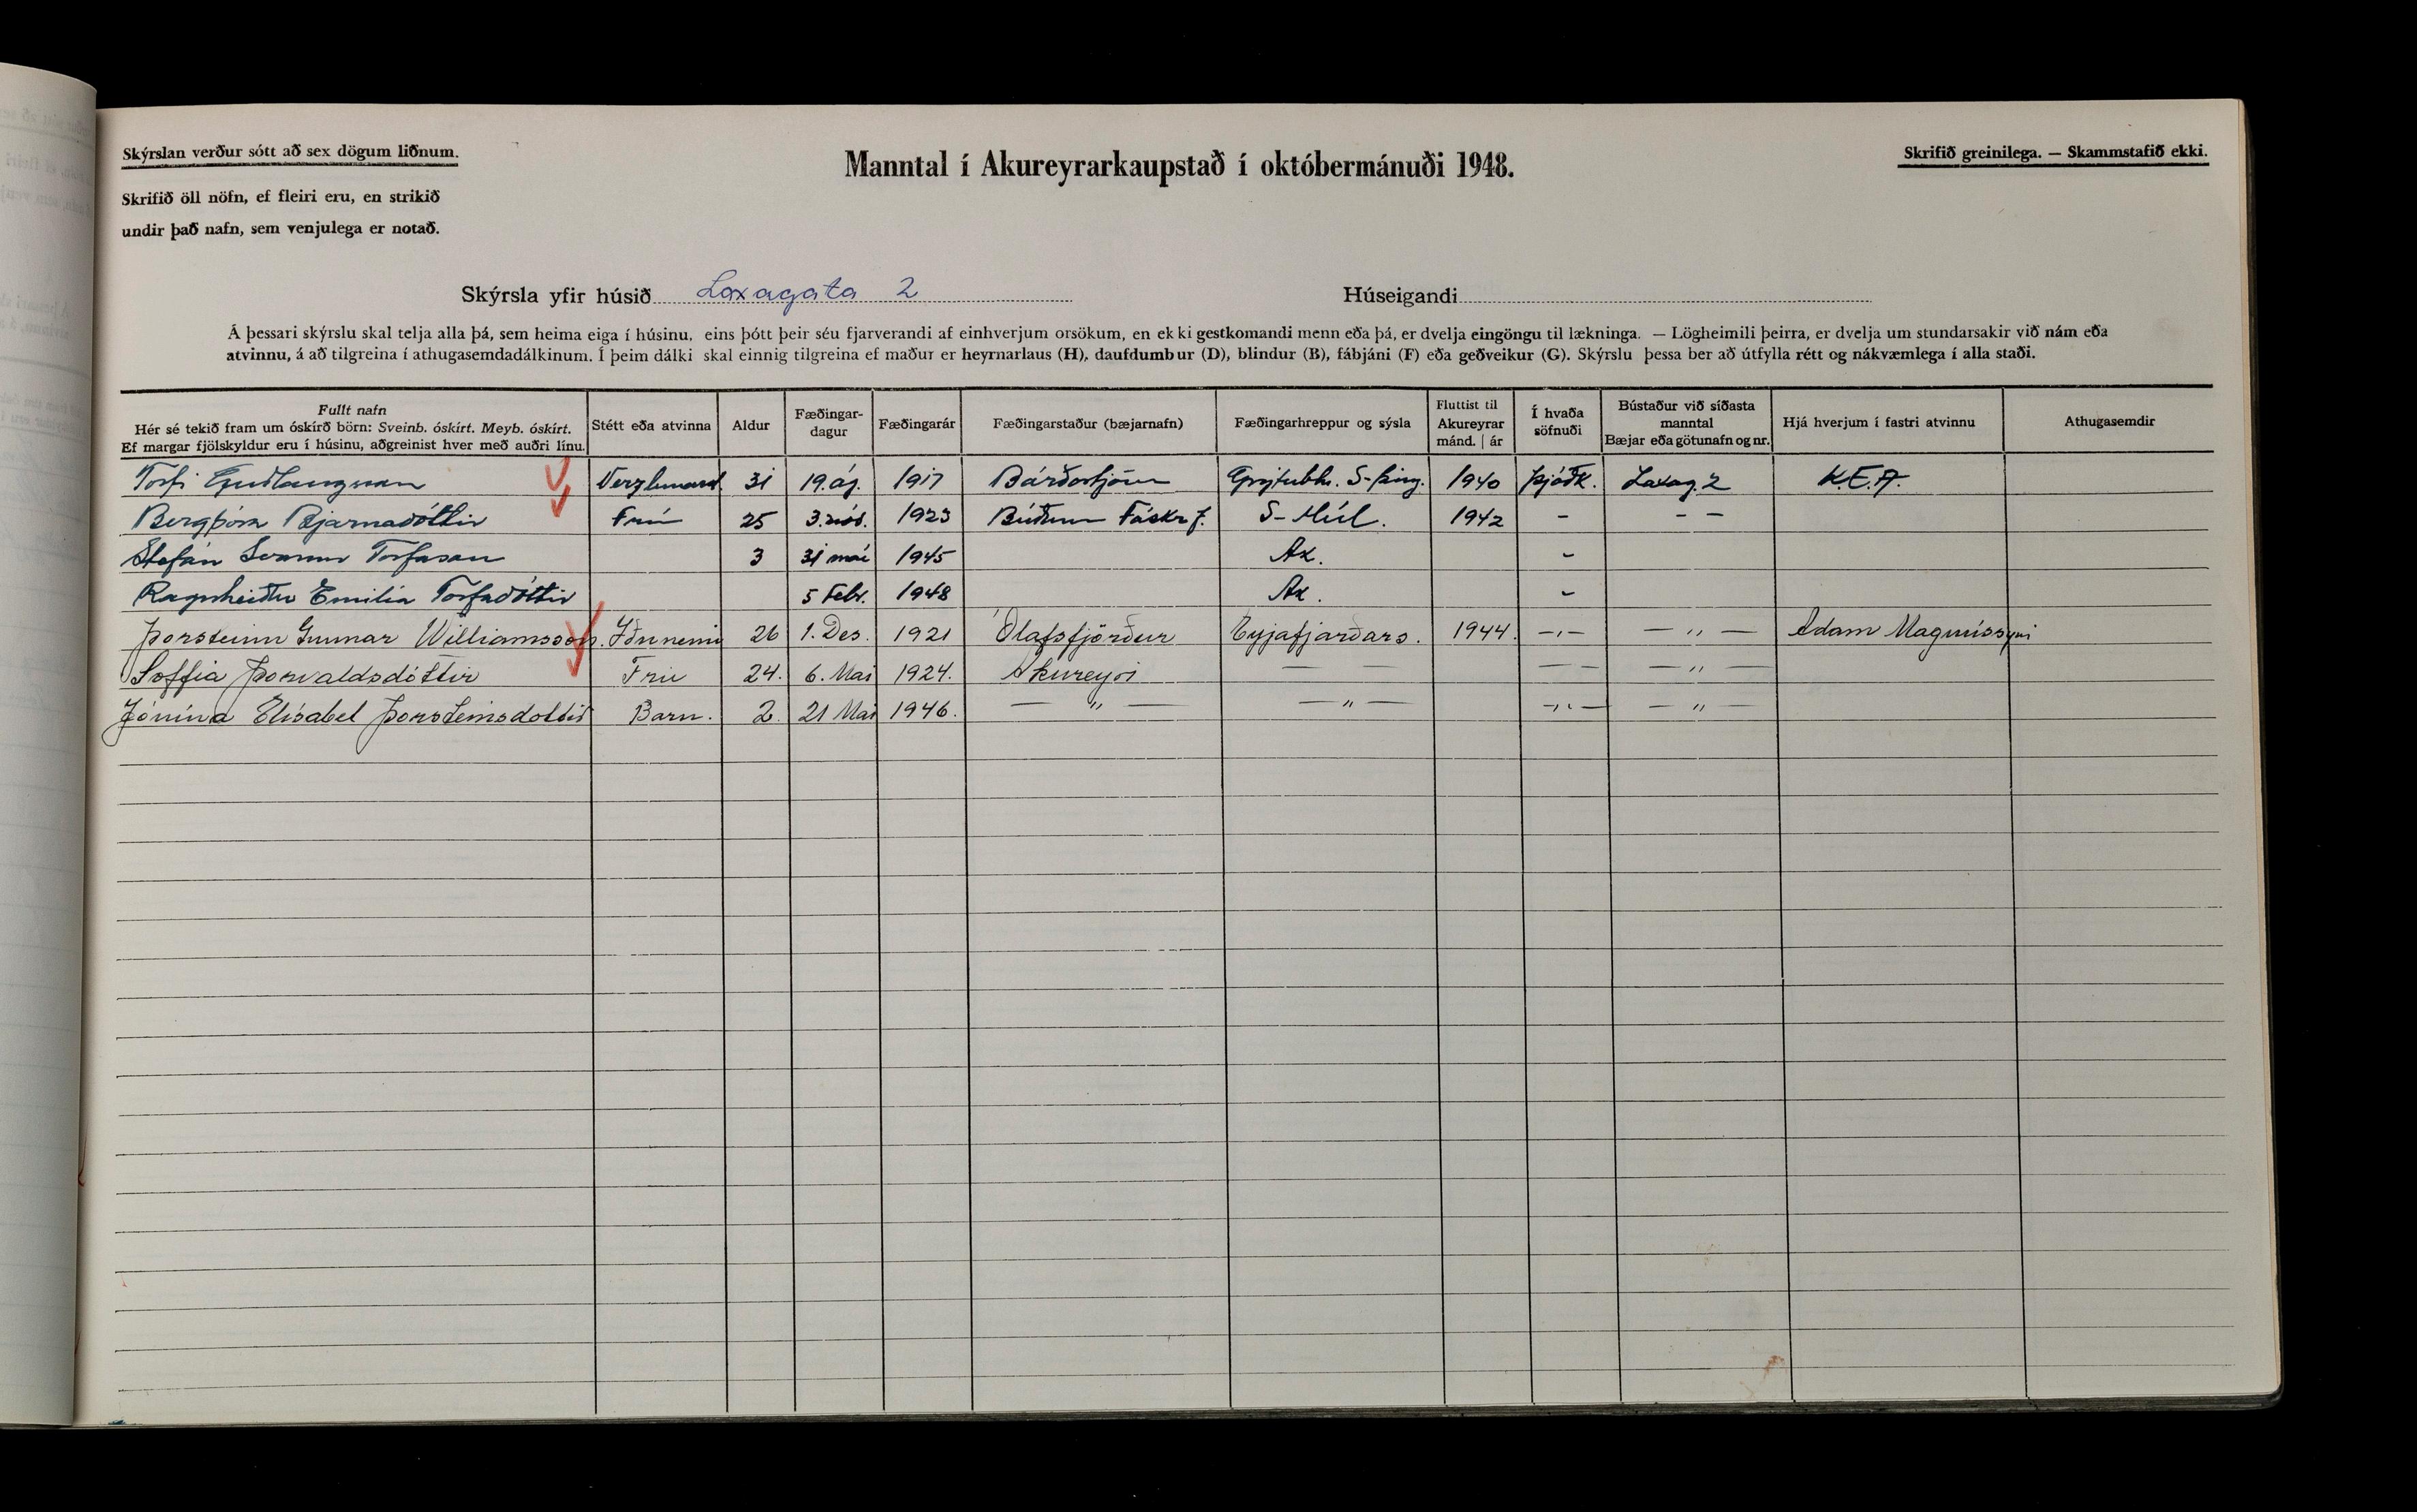 Skýrslan verður sótt að sex dögum liðnum.
Manntal í Akureyrarkaupstað í októbermánuði 1948.
Skrifið greinilega. — Skammstafið ekki.
Skrifið öll nöfn, ef fleiri eru, en strikið
undir það nafn, sem venjulega er notað.
Skýrsla yfir húsið Laxagata 2 Húseigandi
Á þessari skýrslu skal telja alla þá, sem heima eiga í húsinu, eins þótt þeir séu fjarverandi af einhverjum orsökum, en ekki gestkomandi menn eða þá, er dvelja eingöngu til lækninga. — Lögheimili þeirra, er dvelja um stundarsakir við nám eða
atvinnu, á að tilgreina í athugasemdadálkinum. Í þeim dálki skal einnig tilgreina ef maður er heyrnarlaus (H), daufdumbur (D), blindur (B), fábjáni (F) eða geðveikur (G). Skýrslu þessa ber að útfylla rétt og nákvæmlega í alla staði.
Fullt nafn
Hér sé tekið fram um óskírð börn: Sveinb. óskírt. Meyb. óskírt.
Ef margar fjölskyldur eru í húsinu, aðgreinist hver með auðri línu.
Stétt eða atvinna
Aldur
Fæðingar-
dagur
Fæðingarár
Fæðingarstaður (bæjarnafn)
Fæðingarhreppur og sýsla
Fluttist til
Akureyrar
mánd. | ár
Í hvaða
söfnuði
Bústaður við síðasta
manntal
Bæjar eða götunafn og nr.
Hjá hverjum í fastri atvinnu
Athugasemdir
Torfi Guðlaugsson Verzlunarst. 31 19. ág. 1917 Grýtubhr. S-Þing. 1940 Þjóðk. Laxag. 2 K.E.A.
Bergþóra Bjarnadóttir Frú 25 3. nóv. 1923 Búðum Fáskr.f. S-Múl. 1942 - - -
Stefán Torfason 3 31 maí 1945 Ak. -
Ragnheiður Emilía Torfadóttir 5 Febr. 1948 Ak. -
Þorsteinn Gunnar Williamsson. Iðnnemi 26 1. Des. 1921 Ólafsfjörður Eyjafjarðars. 1944. —,— — ,, — Adam Magnússyni
Soffia Þorvaldsdóttir Frú 24. 6. Mai 1924. Akureyri — — — — — ,, —
Jónína Elísabet Þorsteinsdóttir Barn. 2. 21 Mai 1946. — ,, — — ,, — —,,— — ,, —